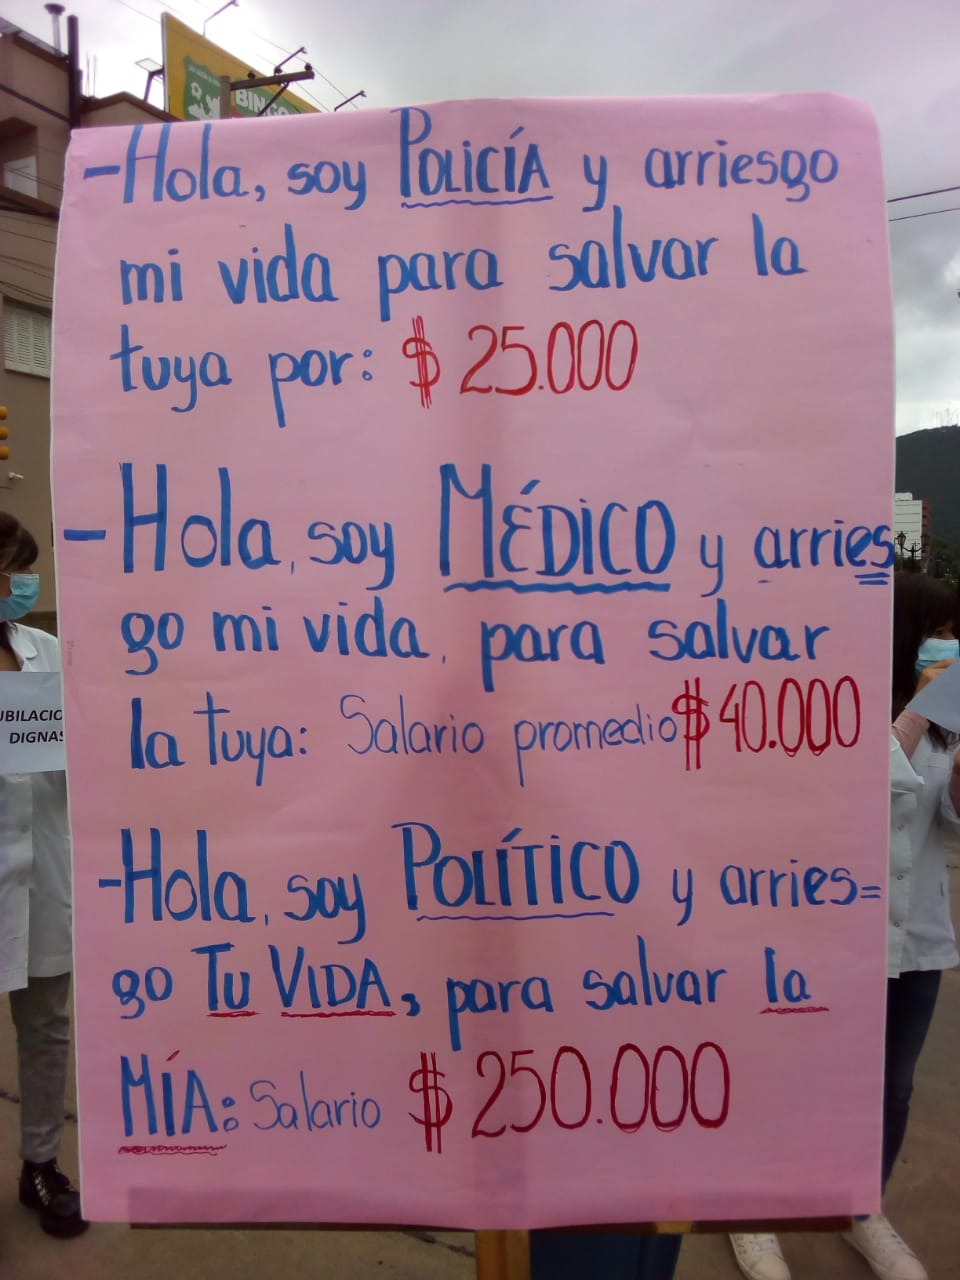 BINGO
-Hola, soy POLICÍA y arriesgo
mi vida para salvar la
tuya por: $ 25.000
-Hola, soy MÉDICO y arries
go mi vida, para salvar
la tuya: Salario promedio $40.000
-Hola, soy POLÍTICO y arries=
go TU VIDA, para salvar la
MÍA: Salario $ 250.000
UBILACIO
DIGNAS